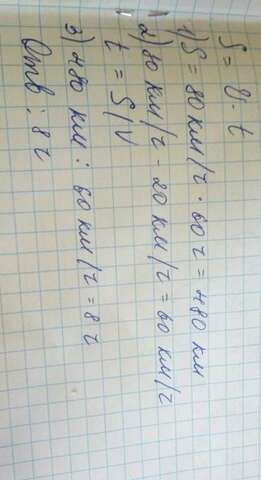 S = v · t
1) S = 80 км/ч · 60 ч = 480 км
2) 80 км/ч - 20 км/ч = 60 км/ч
t = S/V
3) 480 км : 60 км/ч = 8 ч
Отв: 8 ч